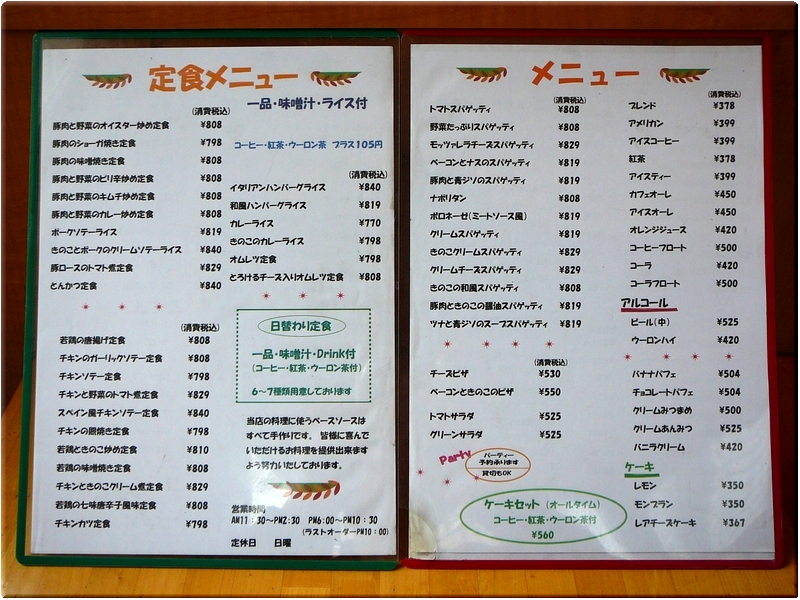 定食メニュー
一品・味噌汁・ライス付
(消費税込)
豚肉と野菜のオイスター炒め定食 ¥808
豚肉のショーガ焼き定食 ¥798
豚肉の味噌焼き定食 ¥808
豚肉と野菜のピリ辛炒め定食 ¥808
豚肉と野菜のキムチ炒め定食 ¥808
豚肉と野菜のカレー炒め定食 ¥808
ポークソテーライス ¥819
きのことポークのクリームソテーライス ¥840
豚ロースのトマト煮定食 ¥829
とんかつ定食 ¥840
(消費税込)
若鶏の唐揚げ定食 ¥808
チキンのガーリックソテー定食 ¥808
チキンソテー定食 ¥798
チキンと野菜のトマト煮定食 ¥829
スペイン風チキンソテー定食 ¥840
チキンの照焼き定食 ¥798
若鶏ときのこ炒め定食 ¥810
若鶏の味噌焼き定食 ¥808
チキンときのこクリーム煮定食 ¥829
若鶏の七味唐辛子風味定食 ¥808
チキンカツ定食 ¥798
コーヒー・紅茶・ウーロン茶 プラス105円
(消費税込)
イタリアンハンバーグライス ¥840
和風ハンバーグライス ¥819
カレーライス ¥770
きのこのカレーライス ¥798
オムレツ定食 ¥798
とろけるチーズ入りオムレツ定食 ¥808
日替わり定食
一品・味噌汁・Drink付
(コーヒー・紅茶・ウーロン茶付)
6～7種類用意しております
当店の料理に使うベースソースは
すべて手作りです。皆様に喜んで
いただけるお料理を提供出来ます
よう努力いたしております。
営業時間
AM11:30～PM2:30 PM6:00～PM10:30
(ラストオーダーPM10:00)
定休日 日曜
メニュー
(消費税込)
トマトスパゲッティ ¥808
野菜たっぷりスパゲッティ ¥808
モッツァレラチーズスパゲッティ ¥829
ベーコンとナスのスパゲッティ ¥819
豚肉と青ジソのスパゲッティ ¥819
ナポリタン ¥808
ボロネーゼ(ミートソース風) ¥819
クリームスパゲッティ ¥819
きのこクリームスパゲッティ ¥829
クリームチーズスパゲッティ ¥829
きのこの和風スパゲッティ ¥808
豚肉ときのこの醤油スパゲッティ ¥819
ツナと青ジソのスープスパゲッティ ¥819
(消費税込)
チーズピザ ¥530
ベーコンときのこのピザ ¥550
トマトサラダ ¥525
グリーンサラダ ¥525
Party
パーティー
予約承ります
貸切もOK
ケーキセット (オールタイム)
コーヒー・紅茶・ウーロン茶付
¥560
(消費税込)
ブレンド ¥378
アメリカン ¥399
アイスコーヒー ¥399
紅茶 ¥378
アイスティー ¥399
カフェオーレ ¥450
アイスオーレ ¥450
オレンジジュース ¥420
コーヒーフロート ¥500
コーラ ¥420
コーラフロート ¥500
アルコール
ビール(中) ¥525
ウーロンハイ ¥420
バナナパフェ ¥504
チョコレートパフェ ¥504
クリームみつまめ ¥500
クリームあんみつ ¥525
バニラクリーム ¥420
ケーキ
レモン ¥350
モンブラン ¥350
レアチーズケーキ ¥367